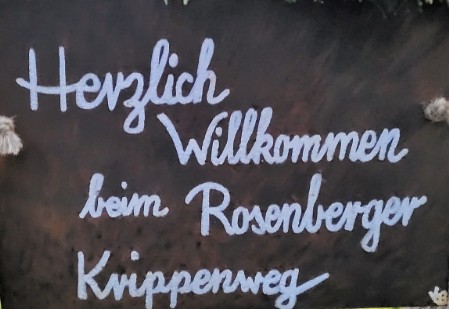 Herzlich
Willkommen
beim Rosenberger
Krippenweg